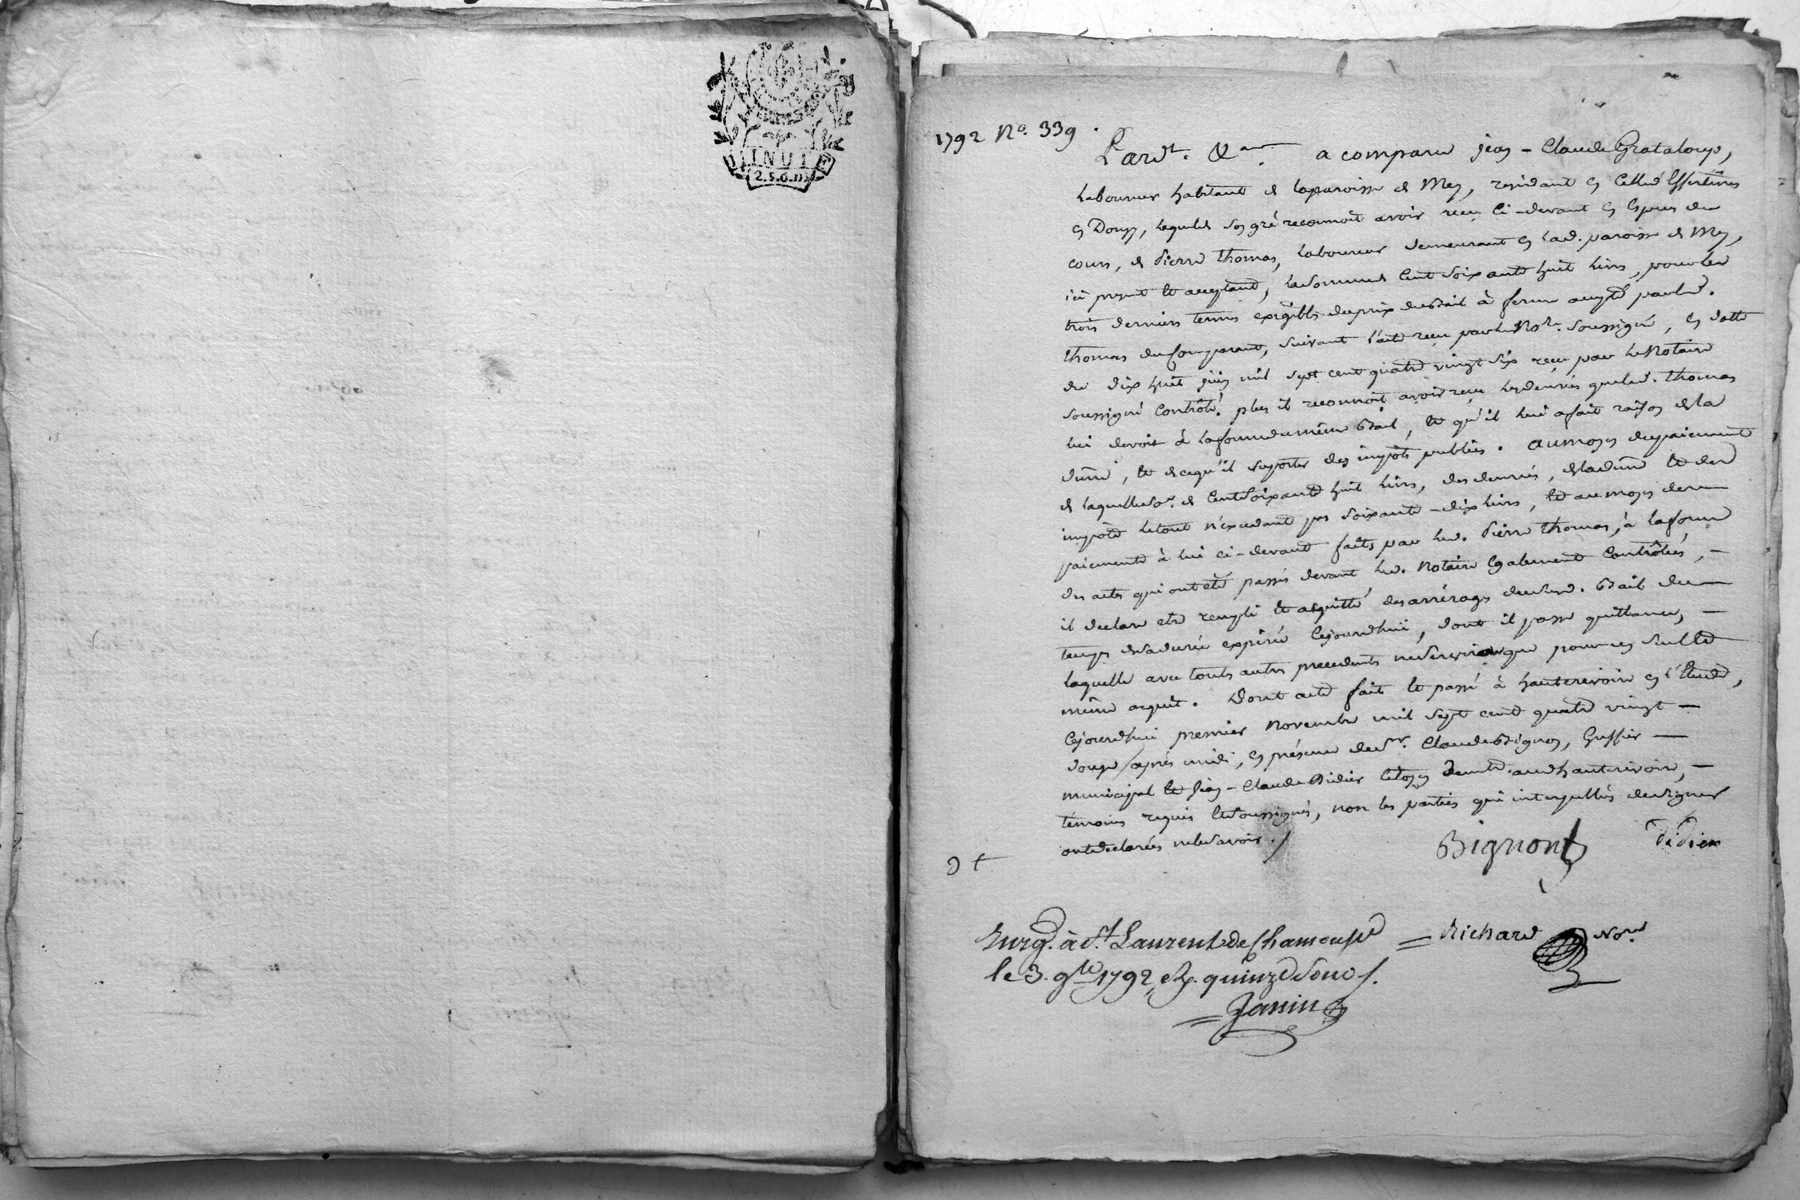 MINUTE
(2.S.6.D)
1792 No. 339.
Pardt. &a a comparu jean-Claude Grataloup,
laboureur habitant de la paroisse de Mey, residant en celle d'Essertines
en Donzy, lequel de son gré reconnoit avoir reçu ci-devant en espèces de
cours, de Pierre Thomas, laboureur demeurant en lad. paroisse de Mey,
ici present et acceptant, la somme de cent soixante huit livres, pour les
trois derniers termes exigibles du prix du bail à ferme accepté par led.
Thomas du comparant, suivant l'acte reçu par le Nore. soussigné, en datte
du dix huit juin mil sept cent quatre vingt six reçu par le Notaire
soussigné Contrôlé. plus il reconnoit avoir reçu les denrées que led. Thomas
lui devoit à la forme du même Bail, et qu'il lui a fait raison de la
dime, et de ce qu'il supporte des impôts publics. au moyen du paiement
de laquelle so. de cent soixante huit livres, des denrées, de la dime et des
impôts le tout n'excedant pas soixante-dix livres, et au moyen des
paiements à lui ci-devant faits par led. Pierre Thomas, à la forme
des actes qui ont été passés devant led. Notaire également Contrôlés,
il declare etre rempli et acquitté des arrérages dud. Bail du
temps de sa durée expirée cejourdhui, dont il passe quittance,
laquelle avec toutes autres precedentes ne servira que pour un seul et
même acquit. Dont acte fait et passé à hauterivoire en l'Etude,
Cejourdhui premier Novembre mil sept cent quatre vingt
douze/après midi, en présence de sr. Claude Bignon, Greffier
municipal et Jean-Claude Didier citoyen demt. aud hauterivoire,
témoins requis et soussignés, non les parties qui interpellées de signer
ont déclarées ne le savoir./
Bignon Didier
Enrgé. à St. Laurent de Chamousset = Richard Nore.
le 3. 9bre 1792, R. quinze sous/.
= Janin